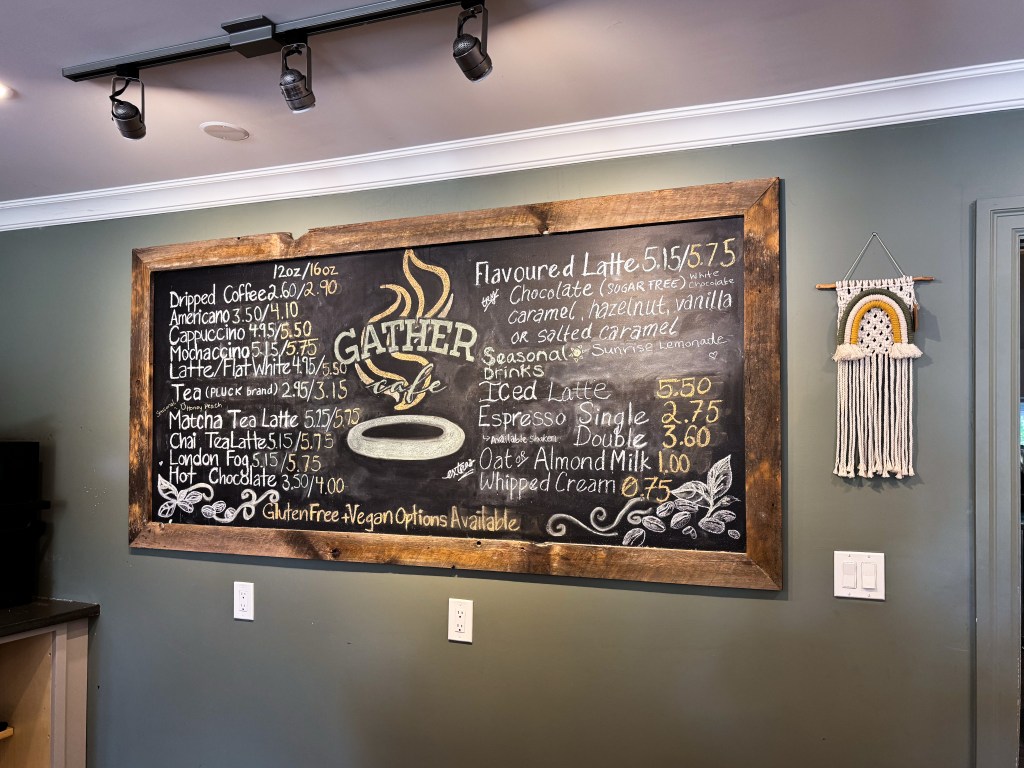 12oz/16oz
Dripped Coffee 2.60/2.90
Americano 3.50/4.10
Cappuccino 4.95/5.50
Mochaccino 5.15/5.75
Latte/Flat White 4.95/5.50
Tea (PLUCK brand) 2.95/3.15
Honey Peach
Matcha Tea Latte 5.25/5.75
Chai Tea Latte 5.15/5.75
London Fog 5.15/5.75
Hot Chocolate 3.50/4.00
Gluten Free + Vegan Options Available
GATHER
cafe
Flavoured Latte 5.15/5.75
try Chocolate (SUGAR TREE) White Chocolate
caramel, hazelnut, vanilla
or salted caramel
Seasonal Drinks
Sunrise Lemonade
Iced Latte 5.50
Espresso Single 2.75
Available shaken Double 3.60
extras
Oat or Almond Milk 1.00
Whipped Cream 0.75